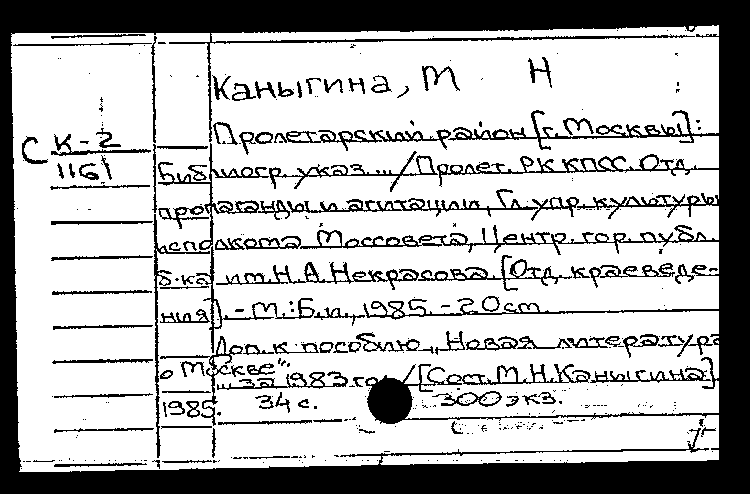 Каныгина, М Н
С К-2
1161
Пролетарский район [г. Москвы]:
Библиогр. указ. .../Пролет. РК КПСС. Отд.
пропаганды и агитации, Гл. упр. культуры
исполкома Моссовета, Центр. гор. публ.
б-ка им. Н.А. Некрасова. [Отд. краеведе-
ния]. - М.: Б.и., 1985. - 20 см.
Доп. к пособию „Новая литература
о Москве".
... за 1983 год/[Сост. М.Н. Каныгина].
1985. 34 с. 300 экз.